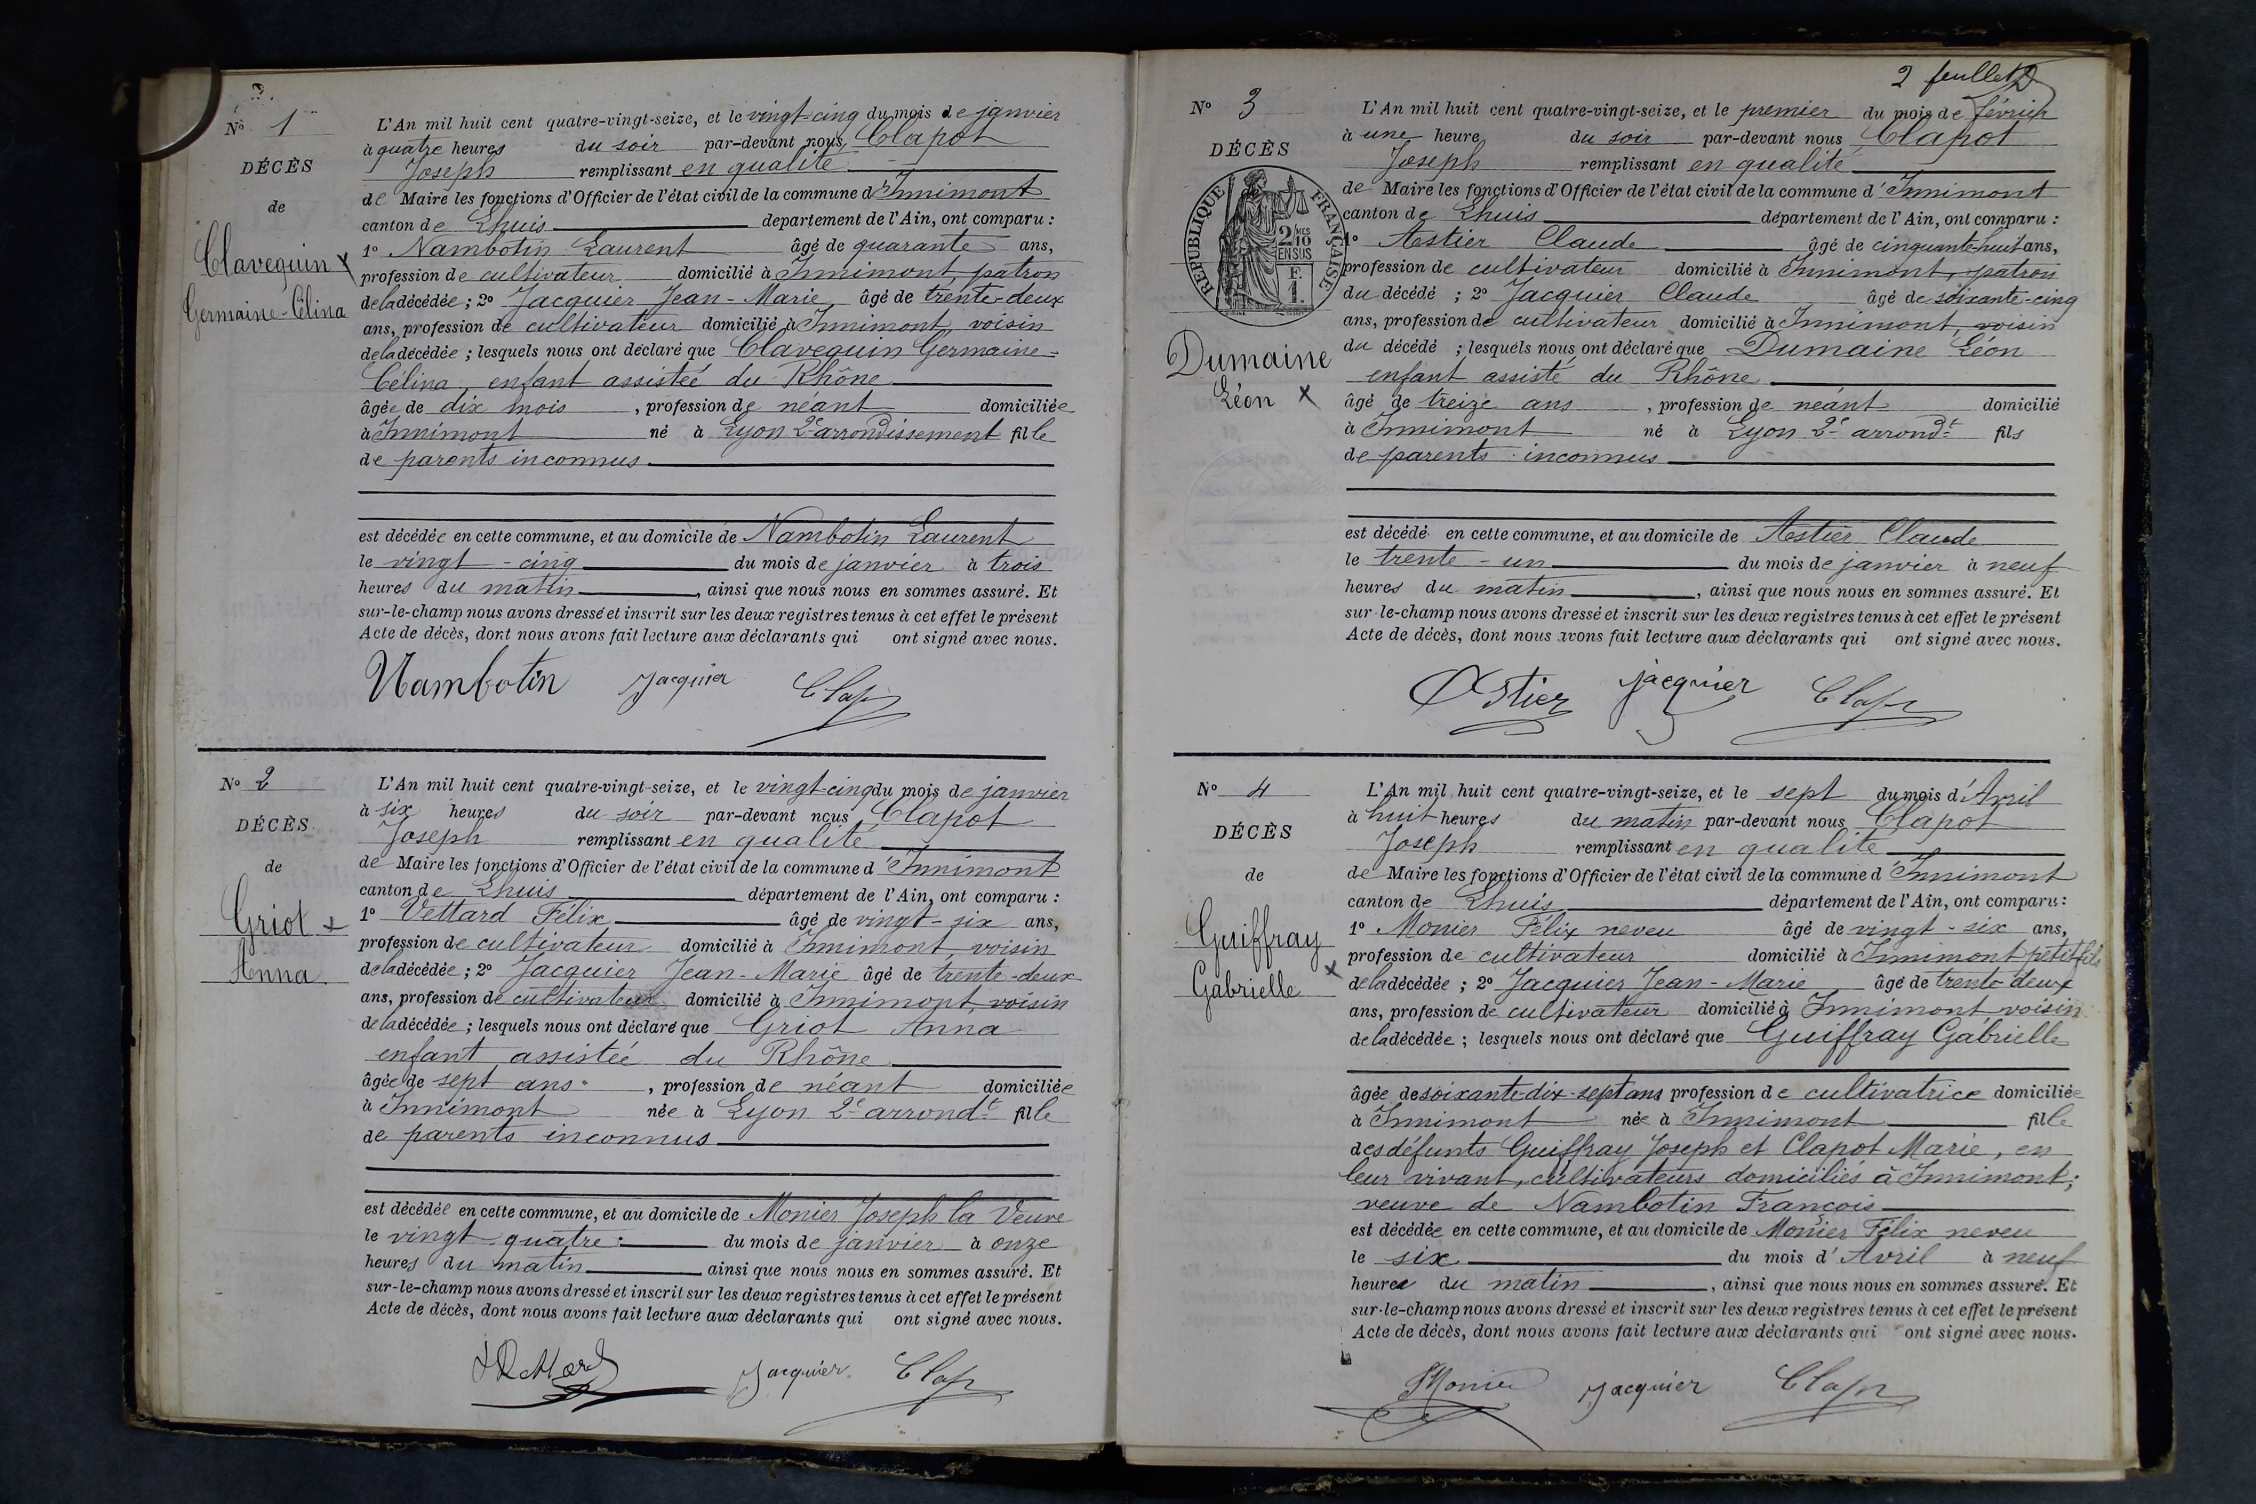 N° 1
DÉCÈS
de
Clavequin x
Germaine-Célina
L'An mil huit cent quatre-vingt-seize, et le vingt-cinq du mois de janvier
à quatre heures du soir par-devant nous Clapot
Joseph remplissant en qualité
de Maire les fonctions d'Officier de l'état civil de la commune d'Innimont
canton de Lhuis département de l'Ain, ont comparu :
1° Nambotin Laurent âgé de quarante ans,
profession de cultivateur domicilié à Innimont, patron
de la décédée ; 2° Jacquier Jean-Marie âgé de trente-deux
ans, profession de cultivateur domicilié à Innimont, voisin
de la décédée ; lesquels nous ont déclaré que Clavequin Germaine-
Célina, enfant assistée du Rhône
âgée de dix mois , profession de néant domiciliée
à Innimont né à Lyon 2e arrondissement fille
de parents inconnus
est décédée en cette commune, et au domicile de Nambotin Laurent
le vingt-cinq du mois de janvier à trois
heures du matin , ainsi que nous nous en sommes assuré. Et
sur-le-champ nous avons dressé et inscrit sur les deux registres tenus à cet effet le présent
Acte de décès, dont nous avons fait lecture aux déclarants qui ont signé avec nous.
Nambotin Jacquier Clapot
N° 2
DÉCÈS
de
Griot x
Anna
L'An mil huit cent quatre-vingt-seize, et le vingt-cinq du mois de janvier
à six heures du soir par-devant nous Clapot
Joseph remplissant en qualité
de Maire les fonctions d'Officier de l'état civil de la commune d'Innimont
canton de Lhuis département de l'Ain, ont comparu :
1° Vettard Félix âgé de vingt-six ans,
profession de cultivateur domicilié à Innimont, voisin
de la décédée ; 2° Jacquier Jean-Marie âgé de trente-deux
ans, profession de cultivateur domicilié à Innimont, voisin
de la décédée ; lesquels nous ont déclaré que Griot Anna
enfant assistée du Rhône
âgée de sept ans , profession de néant domiciliée
à Innimont née à Lyon 2e arrondt fille
de parents inconnus
est décédée en cette commune, et au domicile de Monier Joseph la Veuve
le vingt quatre du mois de janvier à onze
heures du matin ainsi que nous nous en sommes assuré. Et
sur-le-champ nous avons dressé et inscrit sur les deux registres tenus à cet effet le présent
Acte de décès, dont nous avons fait lecture aux déclarants qui ont signé avec nous.
Vettard Jacquier Clapot
2 feuillet
N° 3
DÉCÈS
RÉPUBLIQUE FRANÇAISE
2 MES
10
EN SUS
F.
1.
Dumaine
Léon x
L'An mil huit cent quatre-vingt-seize, et le premier du mois de février
à une heure du soir par-devant nous Clapot
Joseph remplissant en qualité
de Maire les fonctions d'Officier de l'état civil de la commune d'Innimont
canton de Lhuis département de l'Ain, ont comparu :
1° Astier Claude âgé de cinquante-huit ans,
profession de cultivateur domicilié à Innimont, patron
du décédé ; 2° Jacquier Claude âgé de soixante-cinq
ans, profession de cultivateur domicilié à Innimont, voisin
du décédé ; lesquels nous ont déclaré que Dumaine Léon
enfant assisté du Rhône
âgé de treize ans , profession de néant domicilié
à Innimont né à Lyon 2e arrondt fils
de parents inconnus
est décédé en cette commune, et au domicile de Astier Claude
le trente-un du mois de janvier à neuf
heures du matin , ainsi que nous nous en sommes assuré. Et
sur-le-champ nous avons dressé et inscrit sur les deux registres tenus à cet effet le présent
Acte de décès, dont nous avons fait lecture aux déclarants qui ont signé avec nous.
Astier jacquier Clapot
N° 4
DÉCÈS
de
Guiffray
Gabrielle x
L'An mil huit cent quatre-vingt-seize, et le sept du mois d'Avril
à huit heures du matin par-devant nous Clapot
Joseph remplissant en qualité
de Maire les fonctions d'Officier de l'état civil de la commune d'Innimont
canton de Lhuis département de l'Ain, ont comparu :
1° Monier Félix neveu âgé de vingt-six ans,
profession de cultivateur domicilié à Innimont petit fils
de la décédée ; 2° Jacquier Jean-Marie âgé de trente deux
ans, profession de cultivateur domicilié à Innimont voisin
de la décédée ; lesquels nous ont déclaré que Guiffray Gabrielle
âgée de soixante-dix-sept ans profession de cultivatrice domiciliée
à Innimont née à Innimont fille
des défunts Guiffray Joseph et Clapot Marie, en
leur vivant, cultivateurs domiciliés à Innimont;
veuve de Nambotin François
est décédée en cette commune, et au domicile de Monier Félix neveu
le six du mois d'Avril à neuf
heures du matin , ainsi que nous nous en sommes assuré. Et
sur-le-champ nous avons dressé et inscrit sur les deux registres tenus à cet effet le présent
Acte de décès, dont nous avons fait lecture aux déclarants qui ont signé avec nous.
Monier Jacquier Clapot